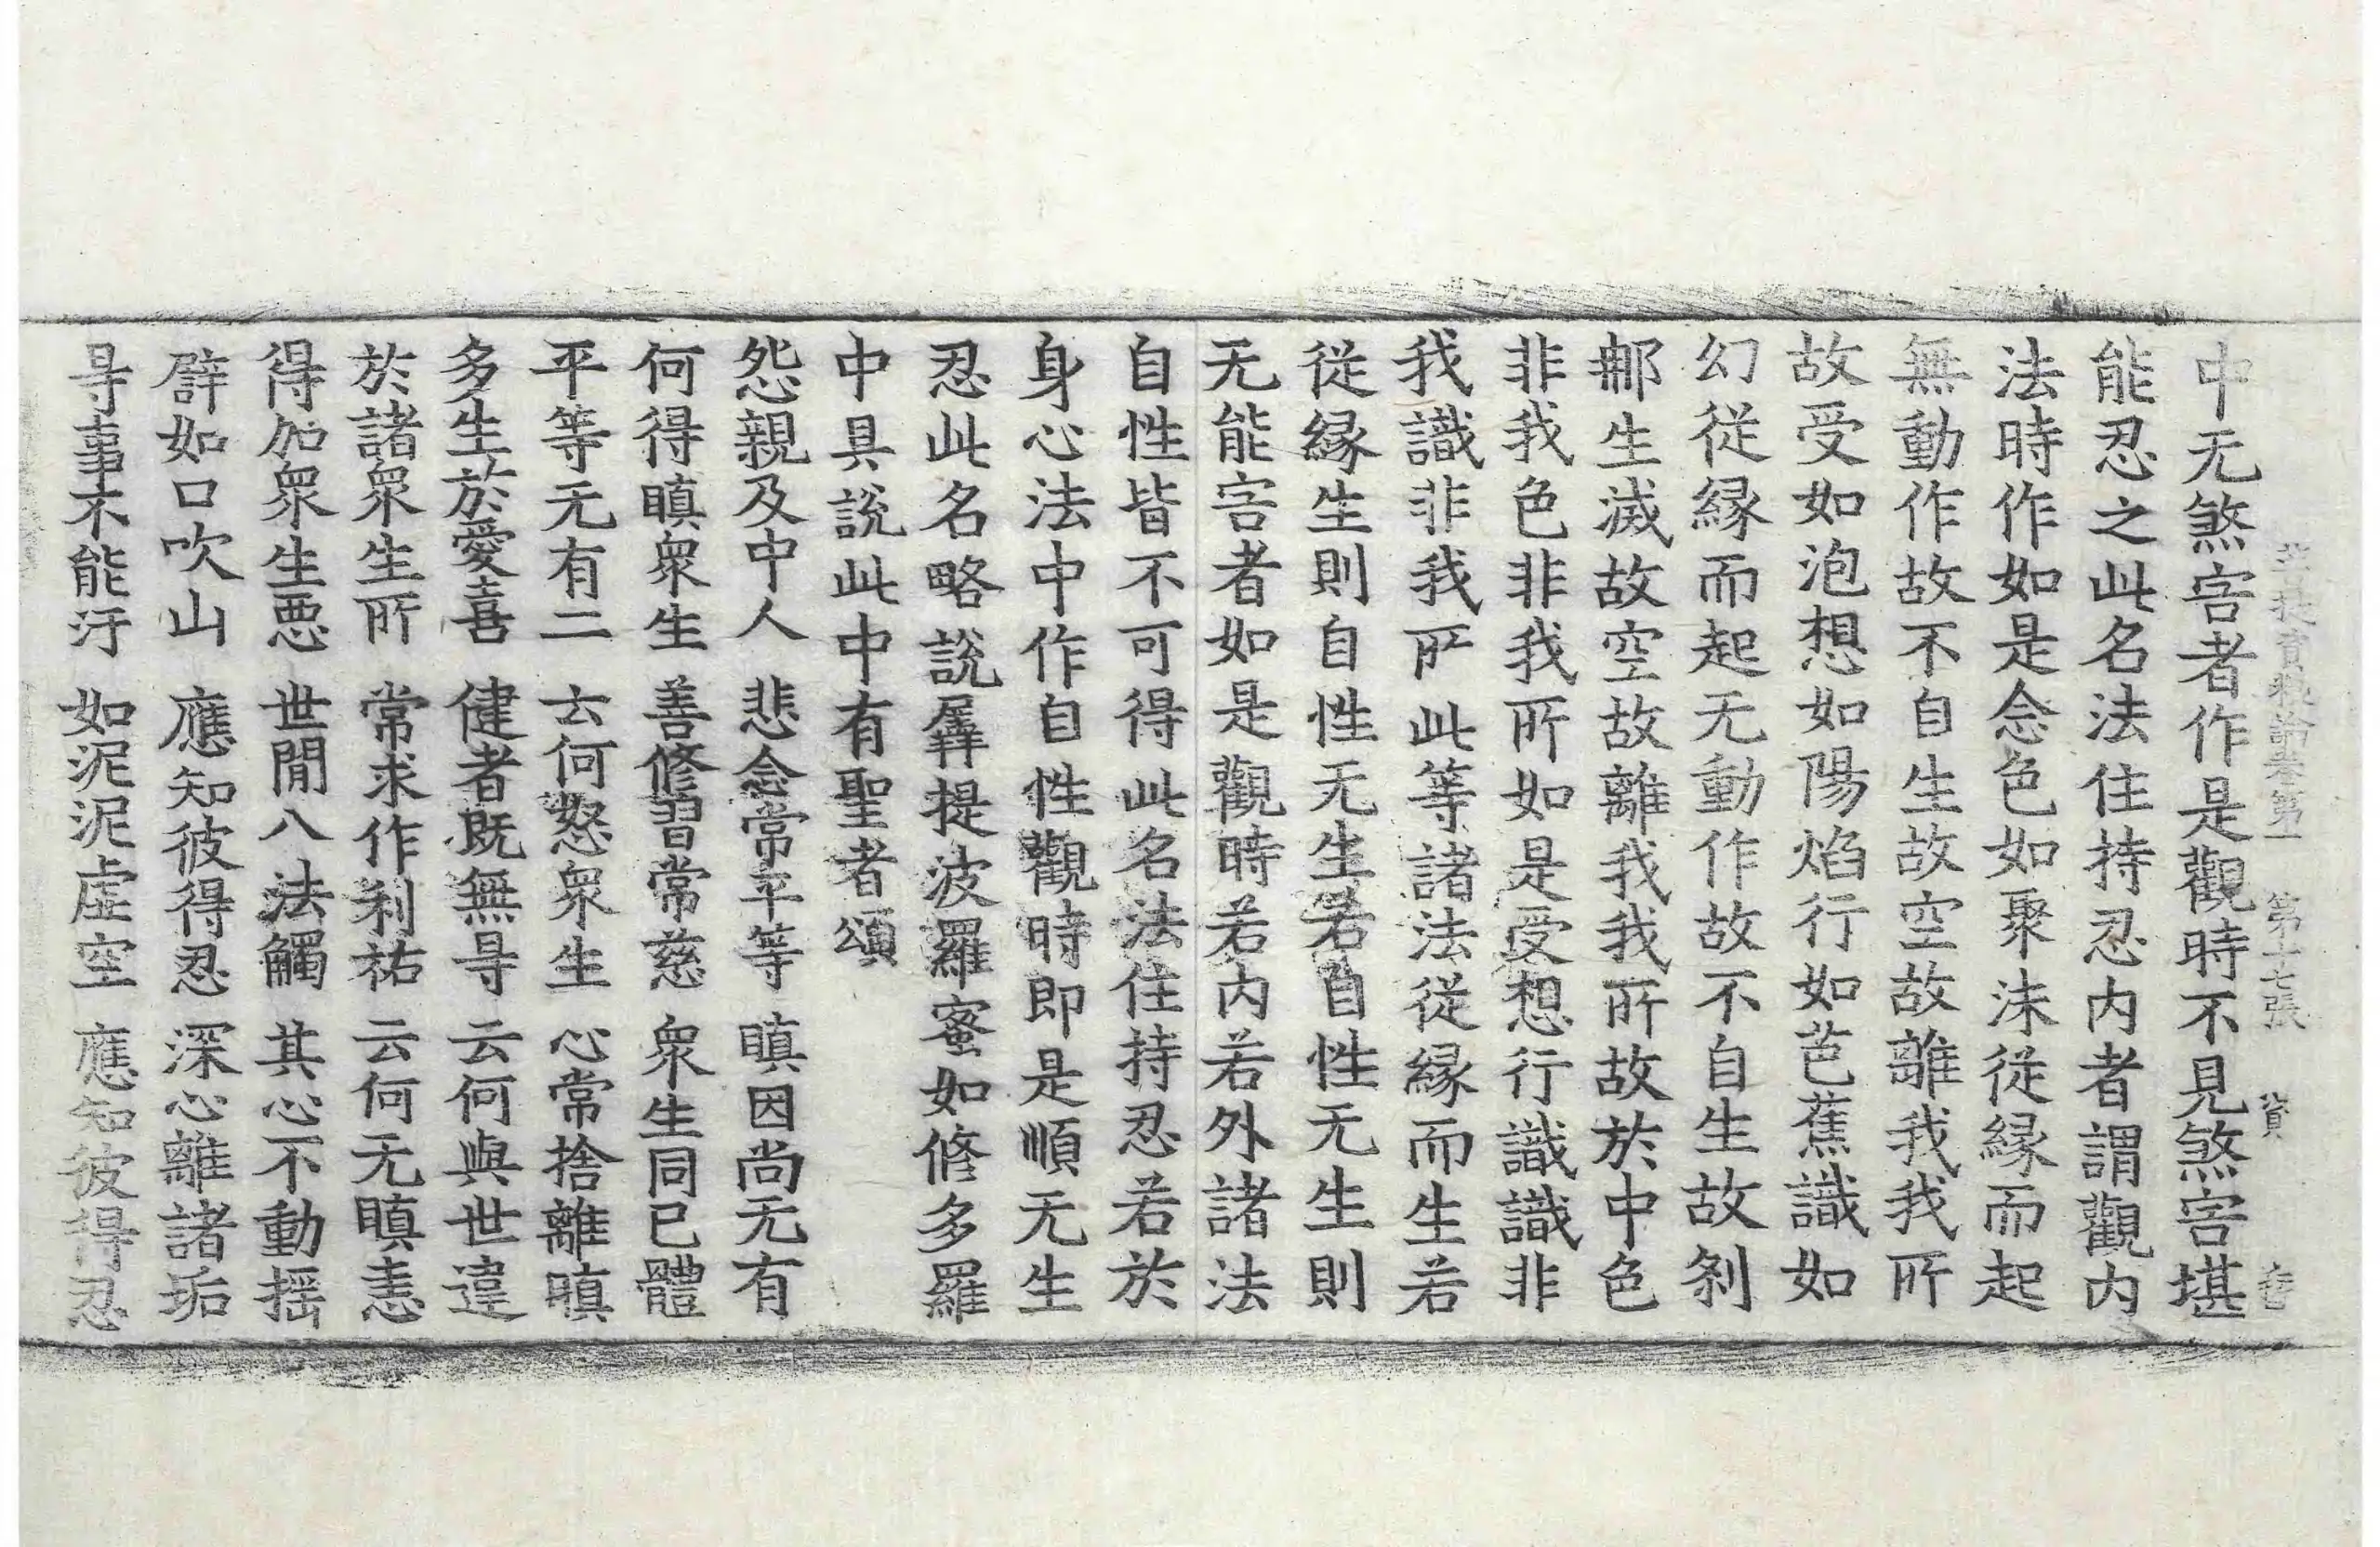 菩提資糧論卷第二 第十七張 資
中无煞害者作是觀時不見煞害堪
能忍之此名法住持忍内者謂觀内
法時作如是念色如聚沫從縁而起
無動作故不自生故空故離我我所
故受如泡想如陽焰行如芭蕉識如
幻從縁而起无動作故不自生故剎
那生滅故空故離我我所故於中色
非我色非我所如是受想行識識非
我識非我所此等諸法從縁而生若
從縁生則自性无生若自性无生則
无能害者如是觀時若内若外諸法
自性皆不可得此名法住持忍若於
身心法中作自性觀時即是順无生
忍此名略說羼提波羅蜜如修多羅
中具說此中有聖者頌
怨親及中人 悲念常平等 瞋因尚无有
何得瞋衆生 善修習常慈 衆生同已體
平等无有二 云何怒衆生 心常捨離瞋
多生於愛喜 健者既無㝵 云何與世違
於諸衆生所 常求作利祐 云何无瞋恚
得加衆生惡 世閒八法觸 其心不動揺
譬如口吹山 應知彼得忍 深心離諸垢
㝵事不能汙 如泥泥虛空 應知彼得忍